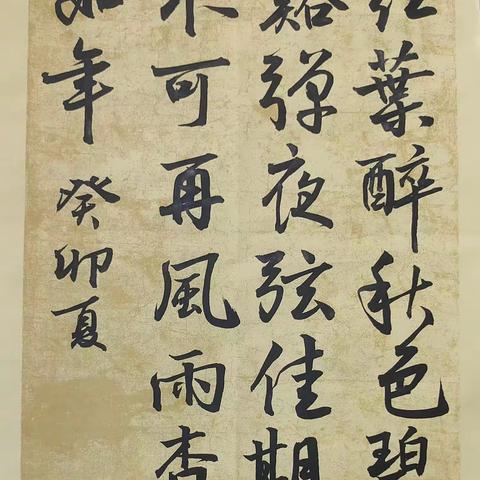 红葉醉秋色碧
谿弹夜弦佳期
不可再風雨杳
如年
癸卯夏